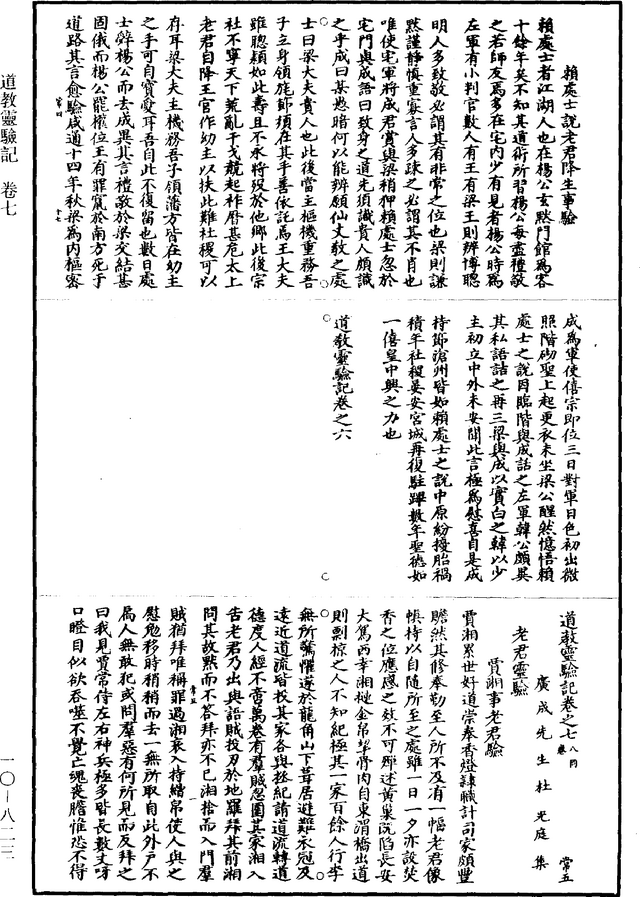 賴處士說老君降生事驗
賴處士者江湖人也在楊公玄黙門館爲客
十餘年矣不知其道術所習楊公每盡禮敬
之若師友焉多在宅內少有見者楊公時爲
左軍有小判官數人有王有梁王則辨博聰
明人多致敬必謂其有非常之位也梁則謙
黙謹靜慎重寡言人多疎之必謂其不肖也
唯使宅軍將成君賞與梁稍押賴處士忽於
宅門與成語曰致身之道先須識貴人頗識
之乎成曰某愚暗何以能辨願仙丈教之處
士曰梁大夫貴人也此後當主樞機重務吾
子立身領旄節須在其手善依託焉王大夫
雖聰顯如此壽且不永將歿於他鄉此後宗
社不寧天下荒亂干戈競起祚曆甚危太上
老君自降王宮作幼主以扶此難社稷可以
存耳梁大夫主機務吾子領藩方皆在幼主
之手可自寶愛耳吾自此不復留也數日處
士辭楊公而去成異其言禮敬於梁交結甚
固俄而楊公罷權位王有罪竄於南方死于
道路其言愈驗咸通十四年秋梁爲內樞密
成爲軍使僖宗即位三日對軍日色初出微
照階砌聖上起更衣未坐梁公醒然憶悟賴
處士之說因臨階與成話之左軍韓公頗異
其私語詰之再三梁與成以實白之韓以少
主初立中外未安聞此言極爲慰喜自是成
持節滄州皆如賴處士之說中原紛擾胎禍
積年社稷晏安宮城再復駐蹕數年聖德如
一僖皇中興之力也
道教靈驗記卷之六
道教靈驗記卷之七 八同卷
廣成先生杜光庭集 常五
老君靈驗
賈湘事老君驗
賈湘累世好道崇奉香燈隸職計司家頗豐
贍然其修奉勤至人所不及有一幅老君像
幀持以自隨所至之處雖一日一夕亦設焚
香之位應感之效不可殫述黃巢既陷長安
大駕西幸湘挈金帛挈骨肉自東渭橋出道
則剽掠之人不知紀極其一家百餘人行李
無所驚懼遂於龍角山下葺居避難衣冠及
遠近道流皆投其家各與拯紀請道流轉道
德度人經不啻萬卷有羣賊忽圍其家湘入
告老君乃出與語賊投刃於地羅拜其前湘
問其故黙而不答拜亦不已湘捨而入門羣
賊猶拜唯稱罪過湘衷入持繒帛使人與之
慰勉移時稍稍而去一無所取自此外戶不
扃人無敢犯或問羣惡有何所見而反拜之
曰我見賈常侍左右神兵極多皆長數丈呀
口瞪目似欲吞噬不覺亡魂喪膽惟恐不得
道教靈驗記 卷七
一〇－八二三